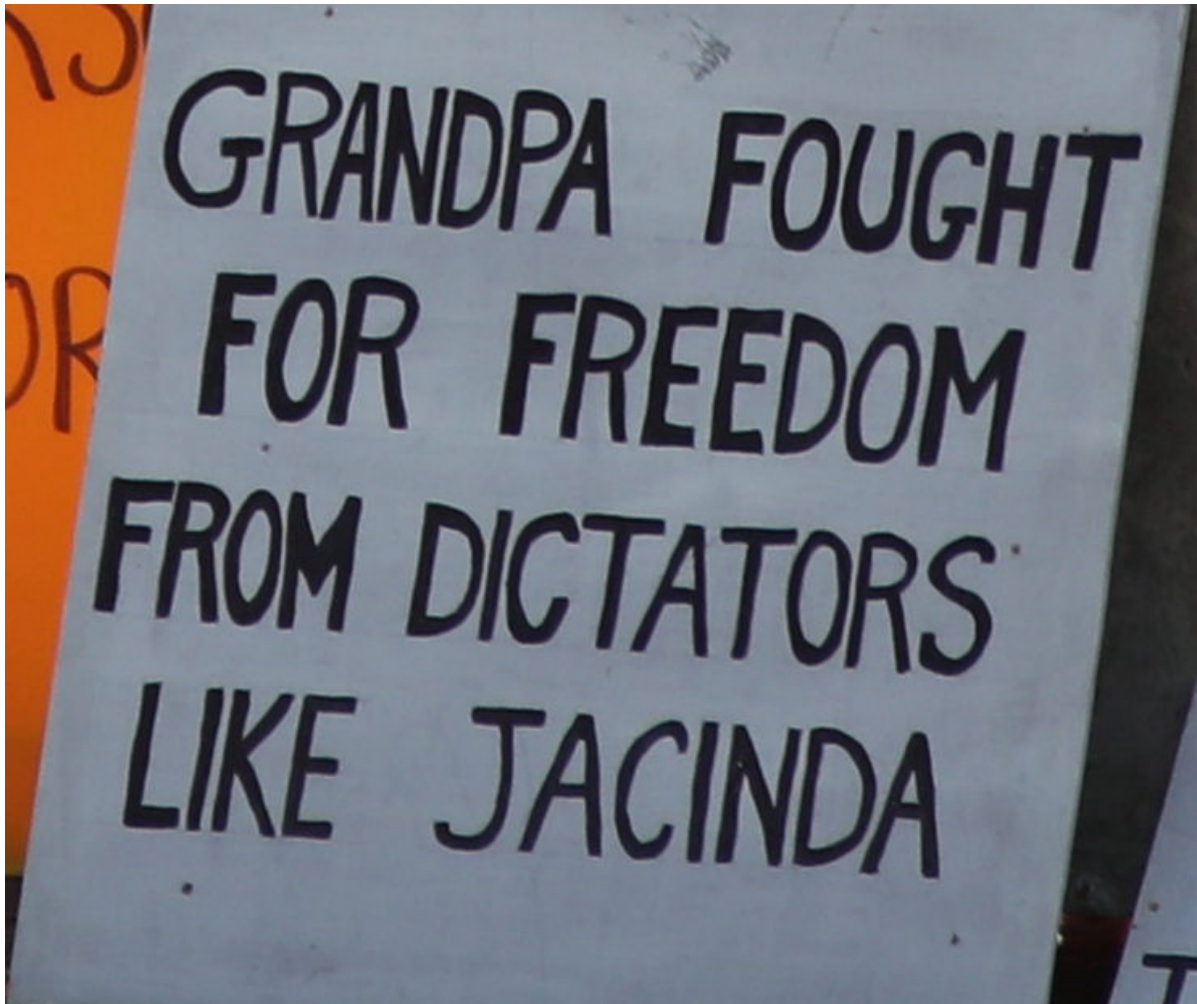 GRANDPA FOUGHT
FOR FREEDOM
FROM DICTATORS
LIKE JACINDA